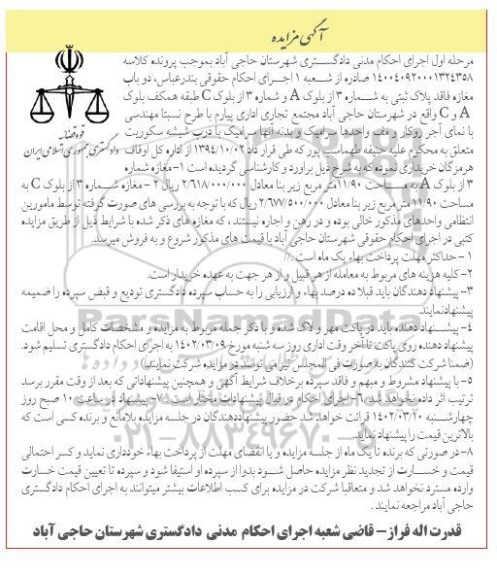 آگهی مزایده
مرحله اول اجرای احکام مدنی دادگستری شهرستان حاجی آباد بموجب پرونده کلاسه
۱۴۰۰۴۰۹۲۰۰۰۱۳۲۴۳۵۸ صادره از شعبه ۱ اجرای احکام حقوقی بندرعباس، دو باب
مغازه فاقد پلاک ثبتی به شماره ۳ از بلوک A و شماره ۳ از بلوک C طبقه همکف بلوک
A و C واقع در شهرستان حاجی آباد مجتمع تجاری اداری پیارم با طرح نسبتا مهندسی
با نمای آجر روکار و مف واحدها سرامیک و بدنه آنها سرامیک با درب شیشه سکوریت
متعلق به محکوم علیه حنیفه طهماسب پور که طی قرارداد ۱۳۹۴/۱۰/۰۲ از اداره کل اوقاف
هرمزگان خریداری نموده که به شرح ذیل برآورد و کارشناسی گردیده است ۱- مغازه شماره
۳ از بلوک A به مساحت ۱۱/۹۰ متر مربع زیر بنا معادل ۲/۶۱۸/۰۰۰/۰۰۰ ریال ۲ - مغازه شماره ۳ از بلوک C به
مساحت ۱۱/۹۰ متر مربع زیر بنا معادل ۲/۶۷۷/۵۰۰/۰۰۰ ریال که با توجه به بررسی های صورت گرفته توسط مامورین
انتظامی واحدهای مذکور خالی بوده و در رهن و اجاره نیستند، که مغازه های ذکر شده با شرایط ذیل از طریق مزایده
کتبی در اجرای احکام حقوقی شهرستان حاجی آباد با قیمت های مذکور شروع و به فروش میرسد.
۱ - حداکثر مهلت پرداخت بهاء یک ماه است.//
۲- کلیه هزینه های مربوط به معامله از هر قبیل و از هر جهت به عهده خریدار است.
۳- پیشنهاد دهندگان باید قبلا ده درصد بهاء و ارزیابی را به حساب سپرده دادگستری تودیع و قبض سپرده را ضمیمه
پیشنهاد نمایند.
۴- پیشنهاد دهنده باید در پاکت مهر و لاک شده و با ذکر جمله مربوط به مزایده و مشخصات کامل و محل اقامت
پیشنهاد دهنده روی پاکت تا آخر وقت اداری روز سه شنبه مورخ ۱۴۰۲/۰۳/۰۹ به اجرای احکام دادگستری تسلیم شود.
(ضمنا شرکت کنندگان به صورت فی المجلس نیز می توانند در مزایده شرکت نمایند)
۵- با پیشنهاد مشروط و مبهم و فاقد سپرده برخلاف شرایط آگهی و همچنین پیشنهاداتی که بعد از وقت مقرر برسد
ترتیب اثر داده نخواهد شد. ۶- اجرای احکام در قبال پیشنهادات مختار است ۷- پیشنهاد در ساعت ۱۰ صبح روز
چهارشنبه ۱۴۰۲/۰۳/۱۰ قرائت خواهد شد حضور پیشنهاددهندگان در جلسه مزایده بلامانع و برنده کسی است که
بالاترین قیمت را پیشنهاد نماید.
۸- در صورتی که برنده تا یک ماه از جلسه مزایده و یا انقضای مهلت از پرداخت بهاء خودداری نماید و کسر احتمالی
قیمت و خسارت از تجدید نظر مزایده حاصل شود بدوا از سپرده او استیفا شود و سپرده تا تعیین قیمت خسارت
وارده مسترد نخواهد شد و متعاقبا شرکت در مزایده برای کسب اطلاعات بیشتر میتوانند به اجرای احکام دادگستری
حاجی آباد مراجعه نمایند.
قدرت اله فراز - قاضی شعبه اجرای احکام مدنی دادگستری شهرستان حاجی آباد
قوه قضائیه
دادگستری جمهوری اسلامی ایران
ParsNamadData
۰۲۱-۸۸۳۴۹۶۷۰-۵